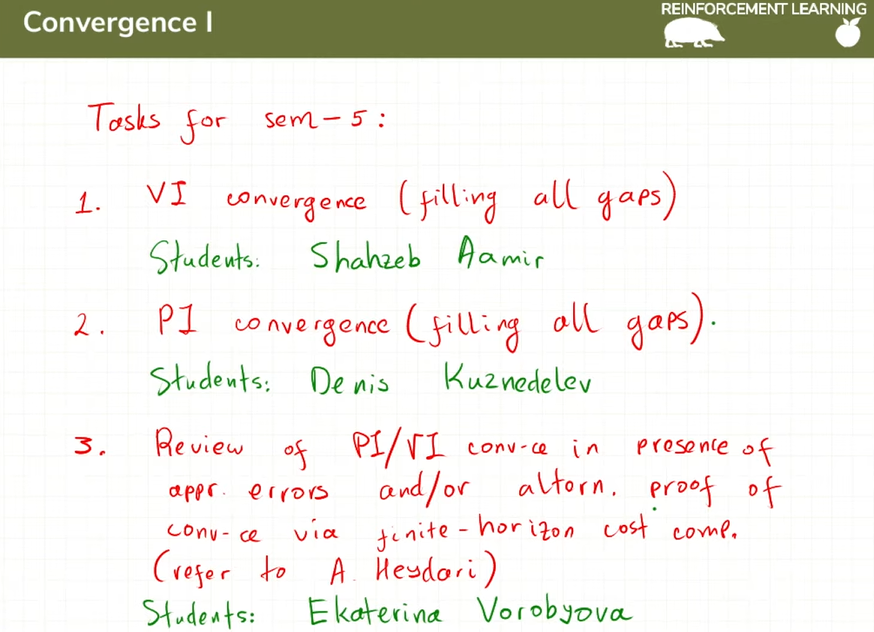 Convergence I
REINFORCEMENT LEARNING
Tasks for sem-5:
1. VI convergence (filling all gaps)
Students: Shahzeb Aamir
2. PI convergence (filling all gaps).
Students: Denis Kuznedelev
3. Review of PI/VI conv-ce in presence of
appr. errors and/or altorn. proof of
conv-ce via finite-horizon cost comp.
(refer to A. Heydari)
Students: Ekaterina Vorobyova